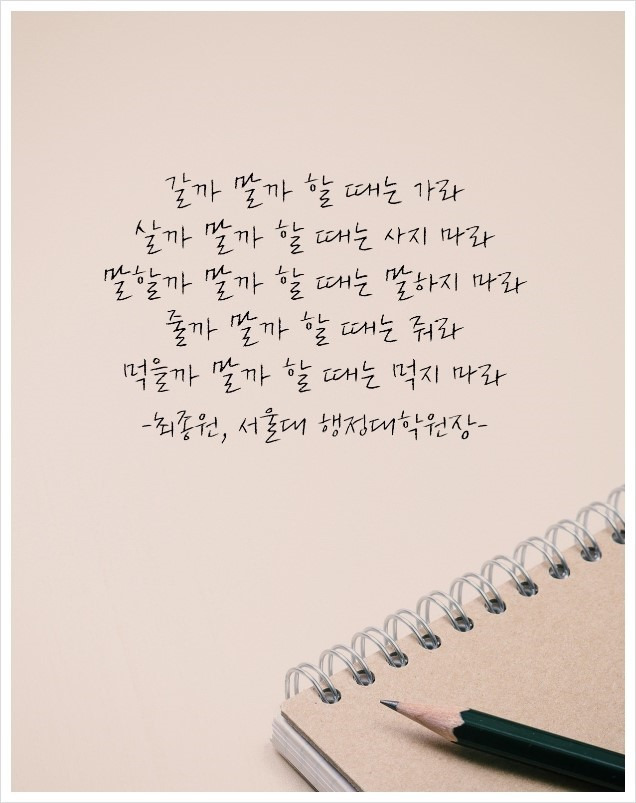 갈까 말까 할 때는 가라
살까 말까 할 때는 사지 마라
말할까 말까 할 때는 말하지 마라
줄까 말까 할 때는 줘라
먹을까 말까 할 때는 먹지 마라
-최종원, 서울대 행정대학원장-